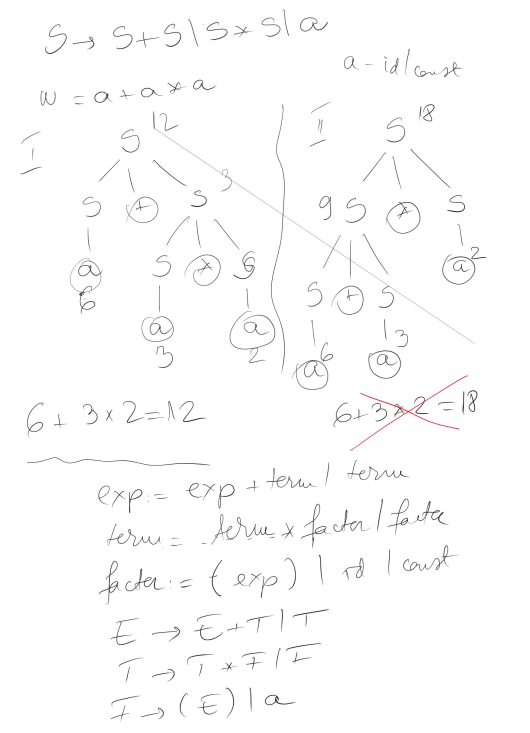 S → S+S | S * S | a
a - id/const
w = a + a * a
I
S 12
S + S 3
a S * S
6
a a
3 2
II
S 18
9 S * S
S + S a 2
a 6 a 3
6 + 3 × 2 = 12
6 + 3 × 2 = 18
exp := exp + term | term
term = term * factor | factor
factor := (exp) | id | const
E → E + T | T
T → T * F | F
F → (E) | a